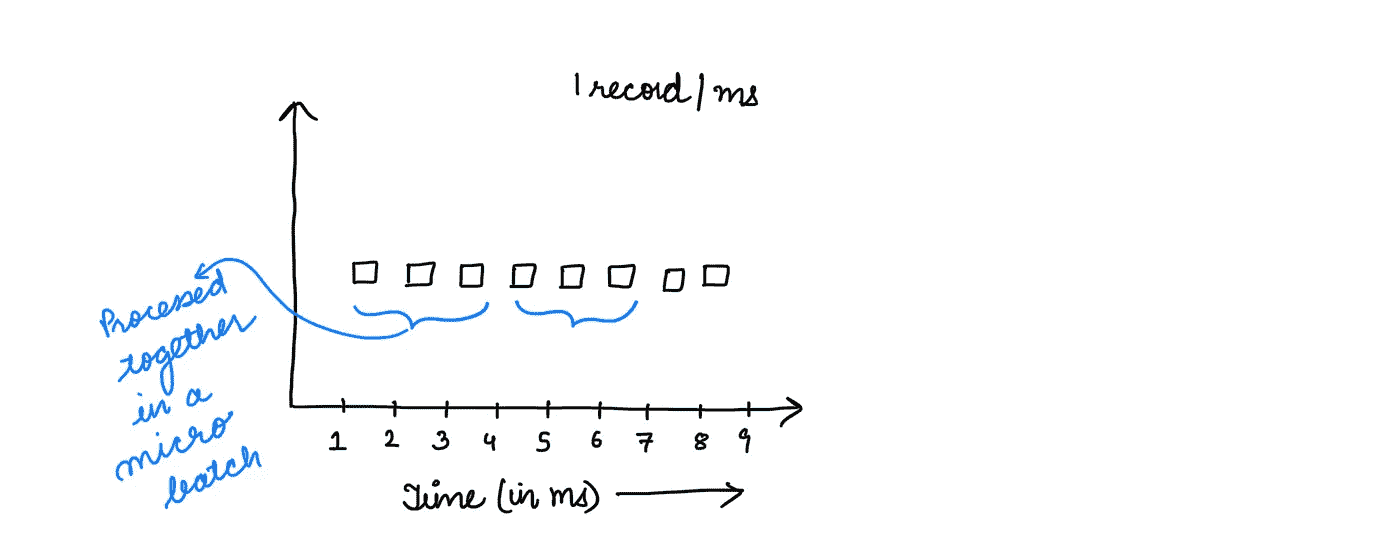 1 record/ms
Processed
together
in a
micro
batch
1 2 3 4 5 6 7 8 9
Time (in ms)